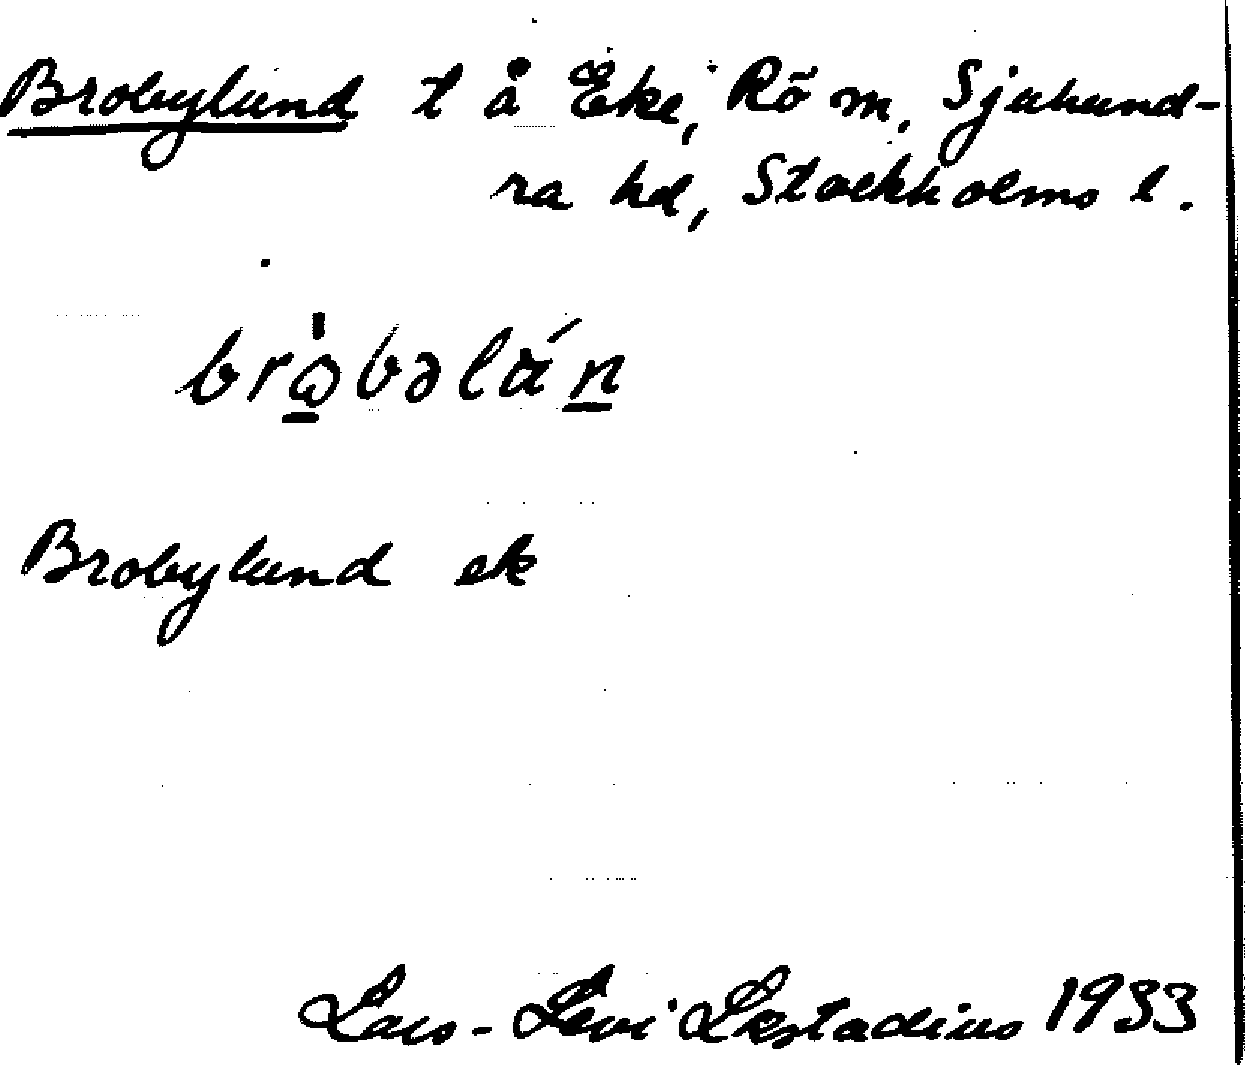 Brobylund t å Eke, Rö sn, Sjuhund-
ra hd, Stockholms l.
Brobylund ek
Lars-Levi Læstadius 1933